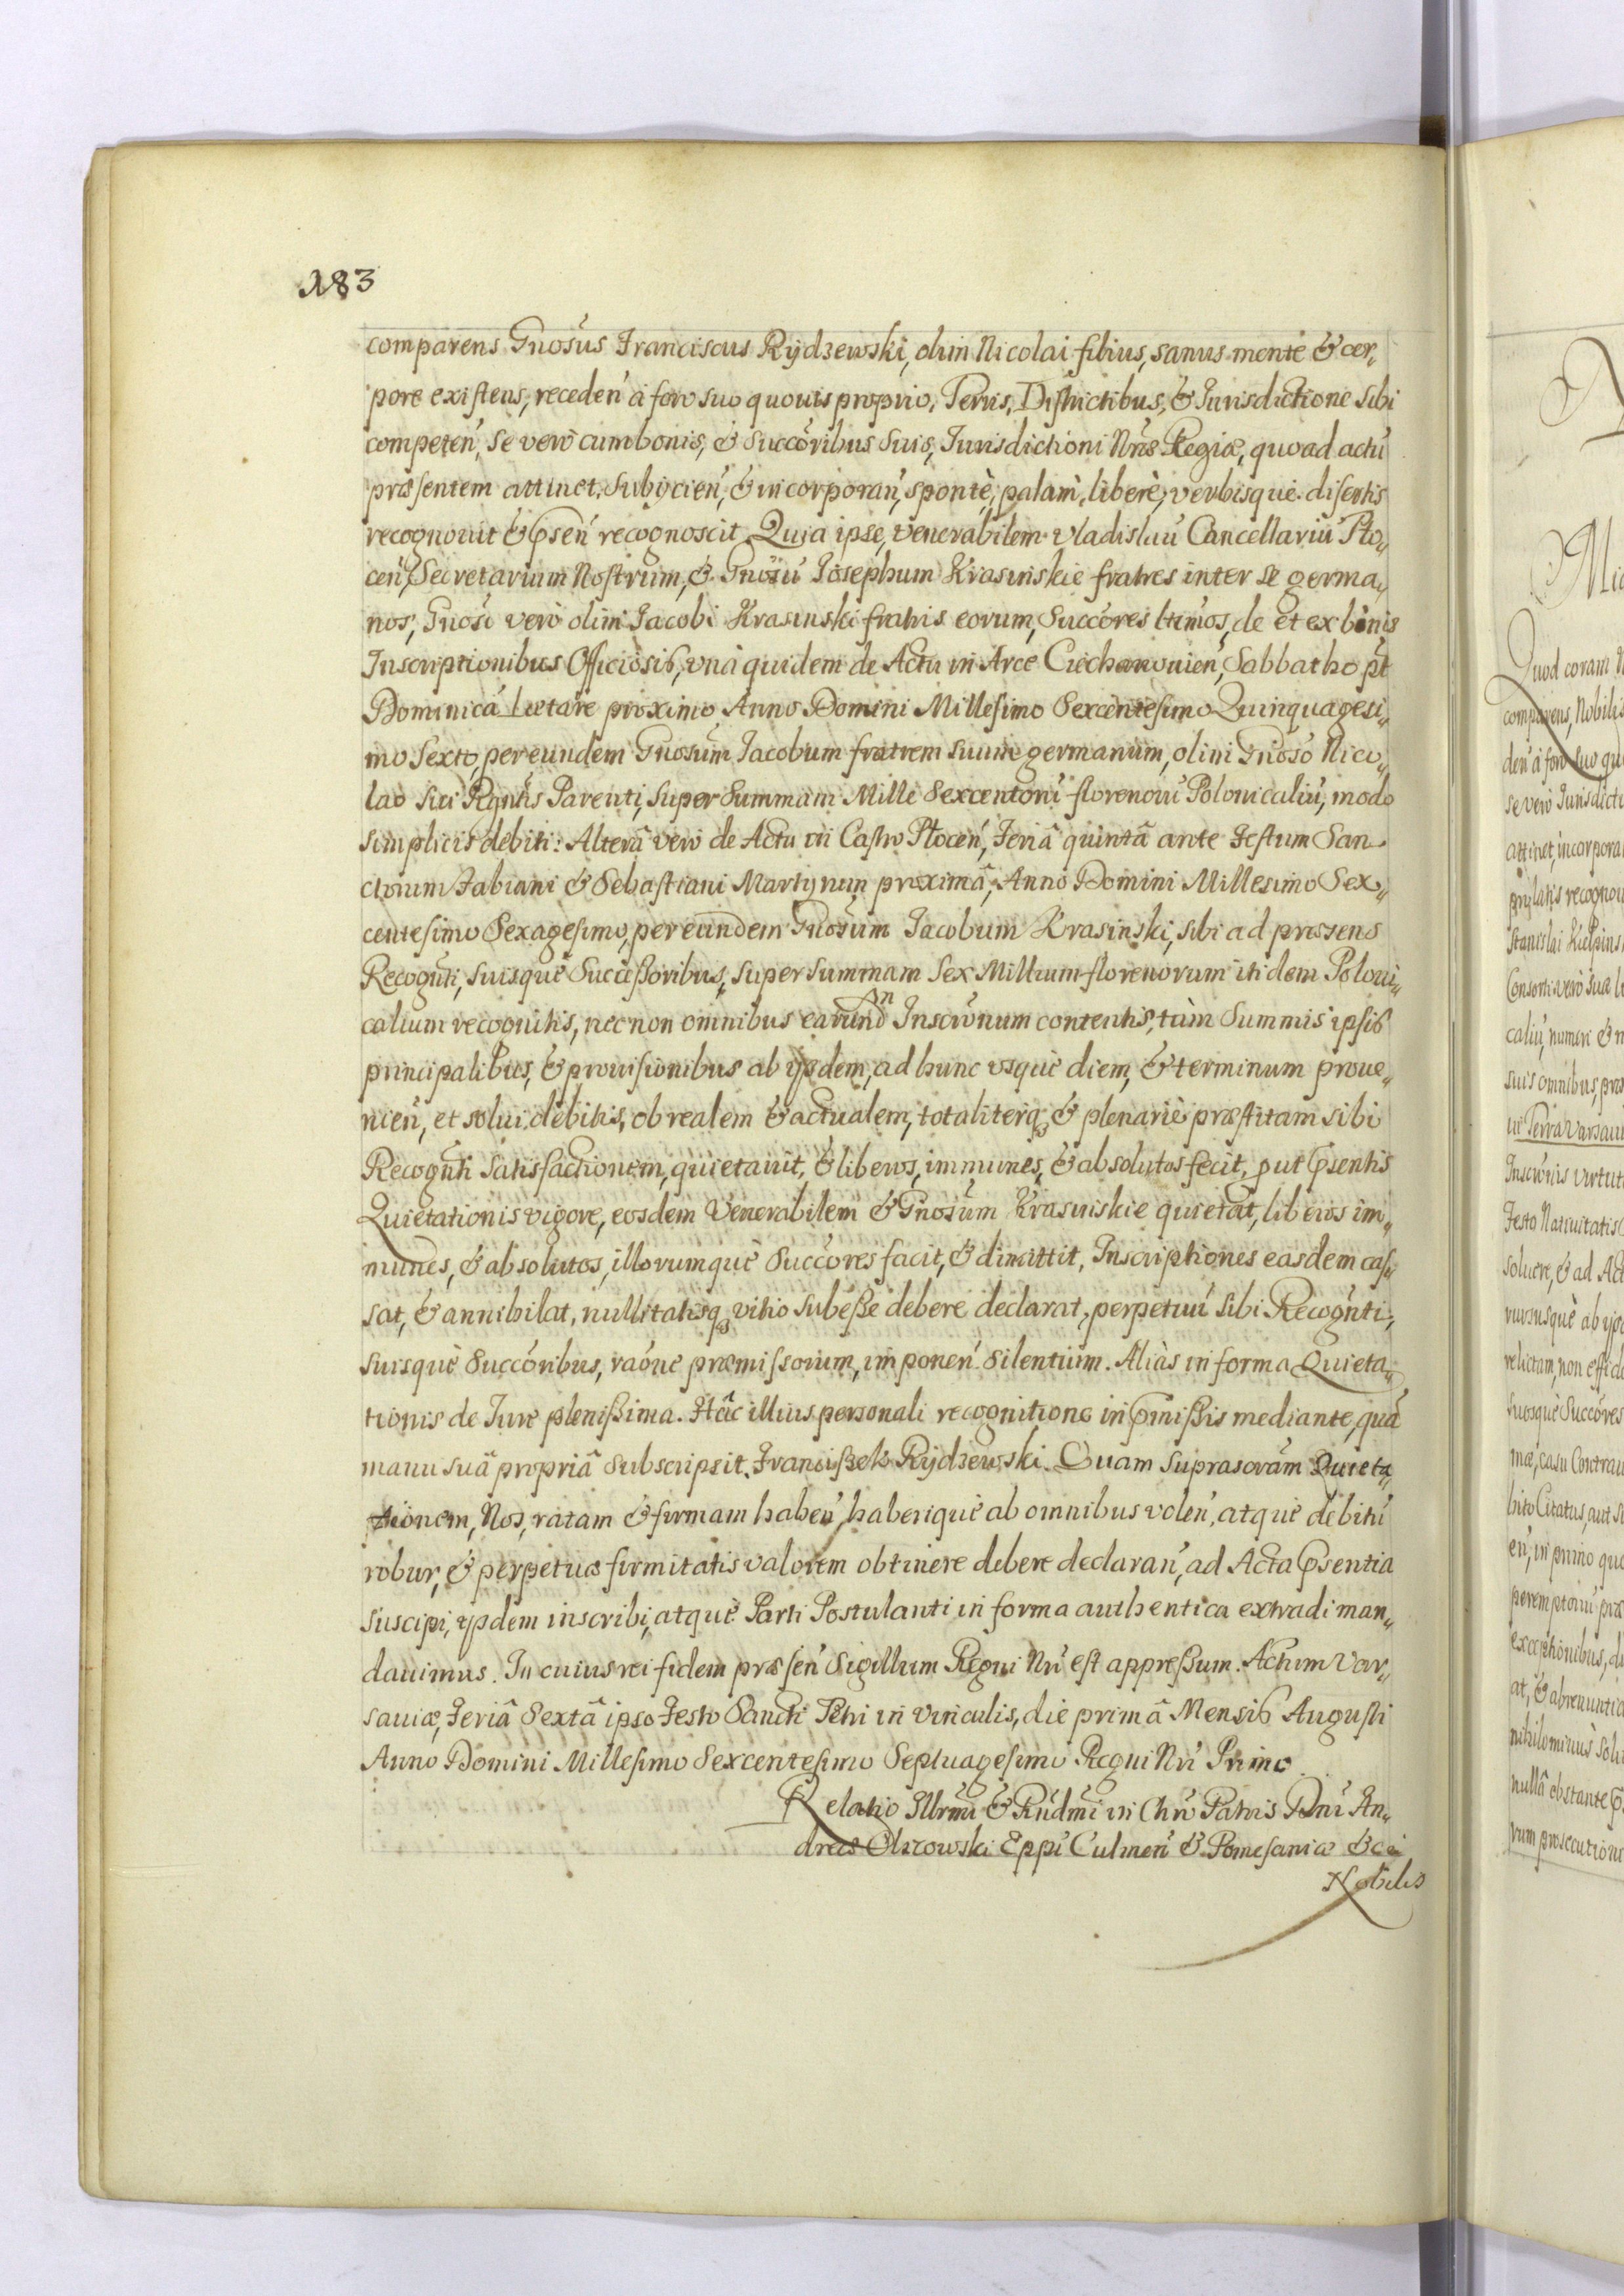 183
comparens Gnosus Franciscus Rydzewski, olim Nicolai filius, sanus mente & cor„
pore existens, receden̄ à foro suo quovis proprio, Terris, Districtibus, & Jurisdictione sibi
competen̄, se verò cum bonis, & succōribus suis, Jurisdictioni Nrae Regiae, quoad actū
praesentem attinet, subijcien̄, & incorporan̄, spontè, palàm, liberè, verbisquè disertis
recognovit & psen̄ recognoscit. Quia ipse, Venerabilem Vladislaū Cancellariū Plo„
cen̄, Secretarium Nostrum, & Gnosū Josephum Krasinskie fratres inter se germa„
nos, Gnosi verò olim Jacobi Krasinski fratris eorum, Succōres ltimos, de et ex binis
Inscriptionibus Officiosis, unâ quidem de Actu in Arce Ciechanovien̄, Sabbatho pt
Dominicā Laetare proximo Anno Domini Millesimo Sexcentesimo Quinquagesi„
mo Sexto, per eundem Gnosum Jacobum fratrem suum germanum, olim Gnoso Nico„
lao sui Rgntis Parenti, super Summam Mille Sexcentorū florenorū Polonicaliū, modo
simplicis debiti: Alterâ verò de Actu in Castro Plocen̄, Feriâ quintâ ante Festum San„
ctorum Fabiani & Sebastiani Martyrum proximâ, Anno Domini Millesimo Sex„
centesimo Sexagesimo, per eundem Gnosum Jacobum Krasinski, sibi ad praesens
Recognti, suisquè Successoribus, super summam Sex Millium florenorum itidem Poloni„
calium recognitis, necnon omnibus earund Inscrōnum contentis, tàm Summis ipsis
principalibus, & provisionibus ab ijsdem, ad hunc usquè diem, & terminum prove„
nien̄, et solui debitis, ob realem & actualem, totaliterq & plenariè praestitam sibi
Recognti satisfactionem, quietavit, & liberos, immunes, & absolutos fecit, put psentis
Quietationis vigore, eosdem Venerabilem & Gnosum Krasinskie quietat, liberos im„
munes, & absolutos, illorumquè Succōres facit, & dimittit, Inscriptiones easdem cas„
sat, & annihilat, nullitatisq vitio subesse debere declarat, perpetuū sibi Recognti,
suisquè Succōribus, raōne praemissorum, imponen̄ silentium. Aliàs in forma Quieta„
tionis de Jure plenissima. Hâc illius personali recognitione in pmissis mediante, quā
manu suâ propriâ subscripsit. Franciszek Rydzewski. Quam suprascrām Quieta„
tionem, Nos, ratam & firmam haben̄, haberiquè ab omnibus volen̄, atquè debitū
robur, & perpetuae firmitatis valorem obtinere debere declaran̄, ad Acta psentia
suscipi, ijsdem inscribi, atquè Parti Postulanti in forma authentica extradi man„
davimus. In cuius rei fidem praesen̄ Sigillum Regni Nri est appressum. Actum Var„
saviae, Feriâ Sextâ ipso Festo Sancti Petri in Vinculis, die primâ Mensis Augusti
Anno Domini Millesimo Sexcentesimo Septuagesimo Regni Nri Primo
Relatio Illrmi & Rndmi in Chro Patris Dni An„
dreae Olszowski Eppi Culmen̄ & Pomesaniae &c
Nobilis